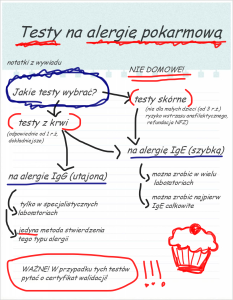 Testy na alergię pokarmową
notatki z wywiadu
NIE DOMOWE!
Jakie testy wybrać?
testy skórne
(nie dla małych dzieci (od 3 r.ż.)
ryzyko wstrząsu anafilaktycznego,
refundacja NFZ)
testy z krwi
(odpowiednie od 1 r.ż.
dokładniejsze)
na alergię IgE (szybką)
na alergię IgG (utajoną)
można zrobić w wielu
laboratoriach
można zrobić najpierw
IgE całkowite
tylko w specjalistycznych
laboratoriach
jedyna metoda stwierdzenia
tego typu alergii
WAŻNE! W przypadku tych testów
pytać o certyfikat walidacji!
!!!